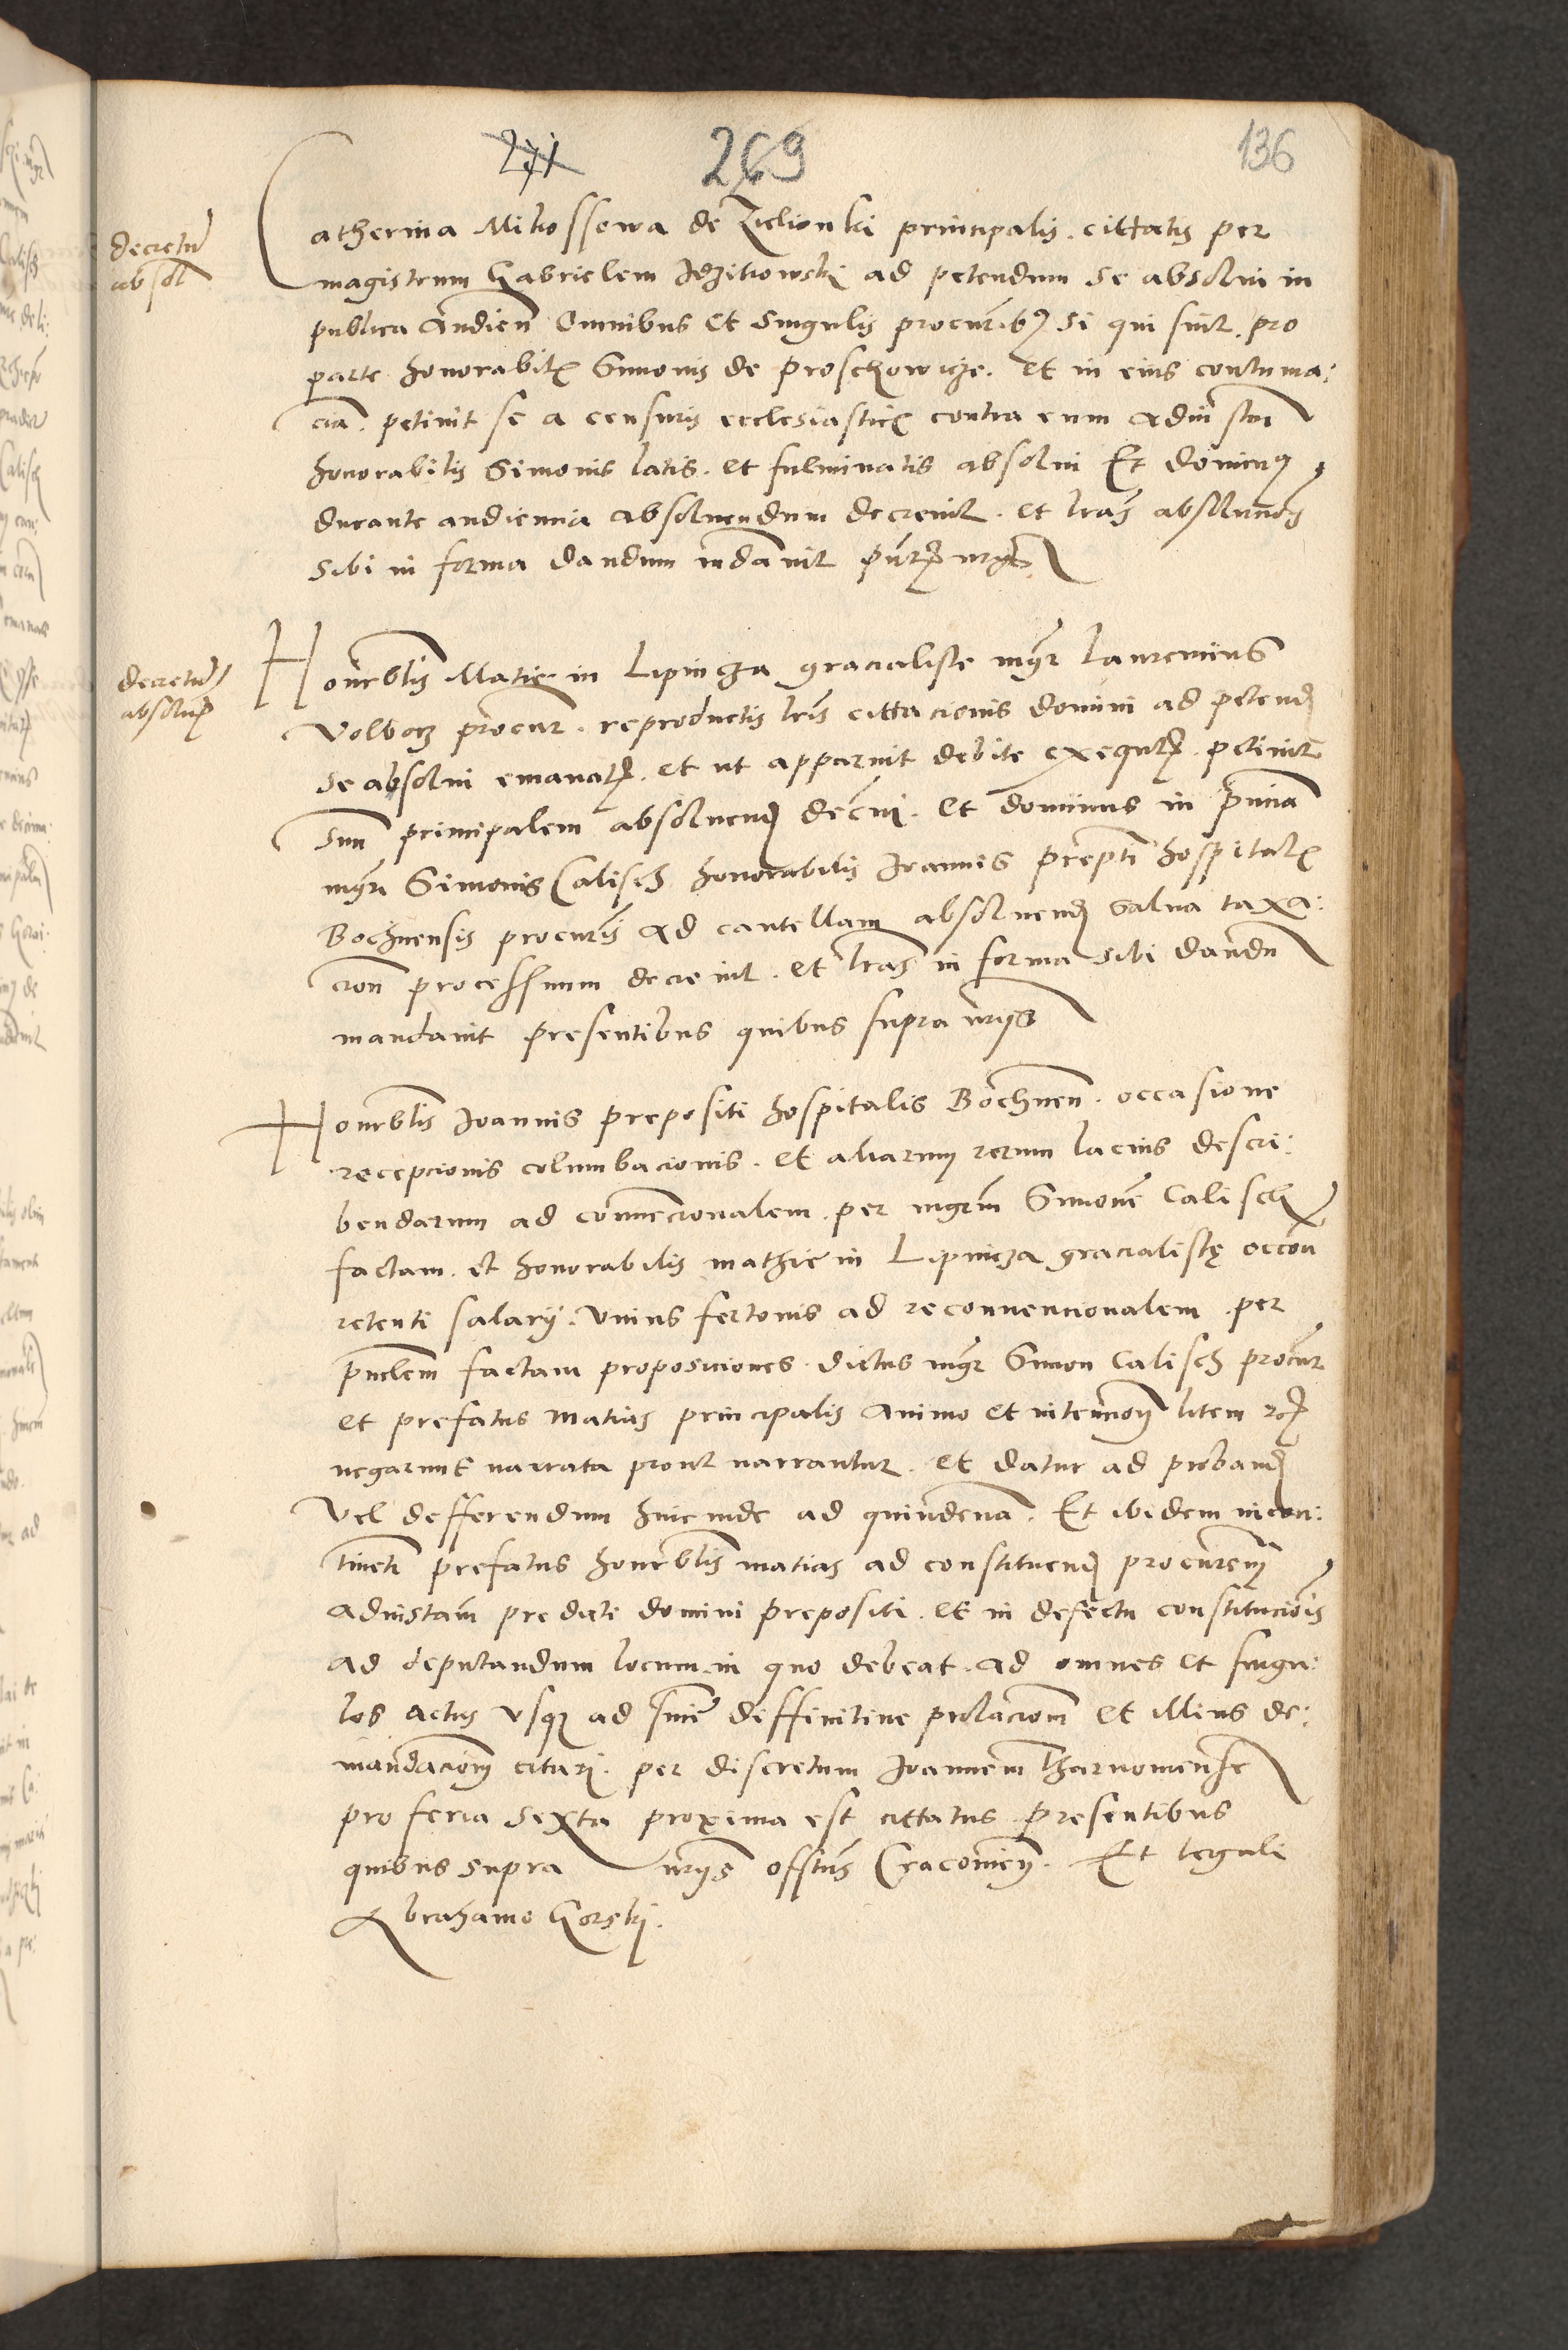 271 269 136
decretu absol
Catherina Mikossowa de Zielionki principalis. cittatis per
magistrum Gabrielem Idzikowski ad petendum se absolui in
publica Audien Omnibus et singulis procurib9 si qui sint. pro
parte honorabilis Simonis de Proschowicze. Et in eius contuma:
cia. petiuit se a censuris ecclesiasticis contra eum ad instan
honorabilis Simonis latis. et fulminatis absolui Et dominus
durante audiencia absoluendum decreuit. et lras absolucionis
sibi in forma dandum mdauit
decretu absolucionis
Honrblis Matie in Lipnicza gracialiste mgr Laurencius
Volborz procur. reproductis lris cittacionis domini ad petend
se absolui emanatis. et ut apparuit debite exequtis. petiuit
suu principalem absoluend decni. Et dominus in pncia
mgri Simonis Calisch honorabilis Joannis prepti hospitalis
Bochnensis procuris ad cautellam absoluend salua taxa:
cion processuum decreuit. et lras in forma sibi dandu
mandauit presentibus quibus supra
Honrblis Joannis prepositi hospitalis Bochnen. occasione
recepcionis columbacionis. et aliarum rerum lacius descri:
bendarum ad conuencionalem. per mgrm Simone Calisch
factam. et honorabilis mathie in Lipnicza gracialistę occon
retenti salarij. Vnius fertonis ad reconuencionalem. per
pnclem factam proposiciones. dictus mgr Simon Calisch procur
et prefatus Matias principalis Animo et intencion litem
negarunt narrata prout narrantur. et datur ad proband
Vel defferendum hincinde ad quindena. Et ibidem incon:
tineti prefatus honrblis matias ad constituend procurem
ad instam predicti domini prepositi. et in defectu constitucionis
ad deputandum locum in quo debeat. ad omnes et singu:
los actus vsq ad snie diffinitiue prolaciom et illius de:
mandaciom citari. per discretum Joannem Tharnomense
pro feria sexta proxima est cittatus presentibus
quibus supra Et Seguli
Abrahamo Gorski.